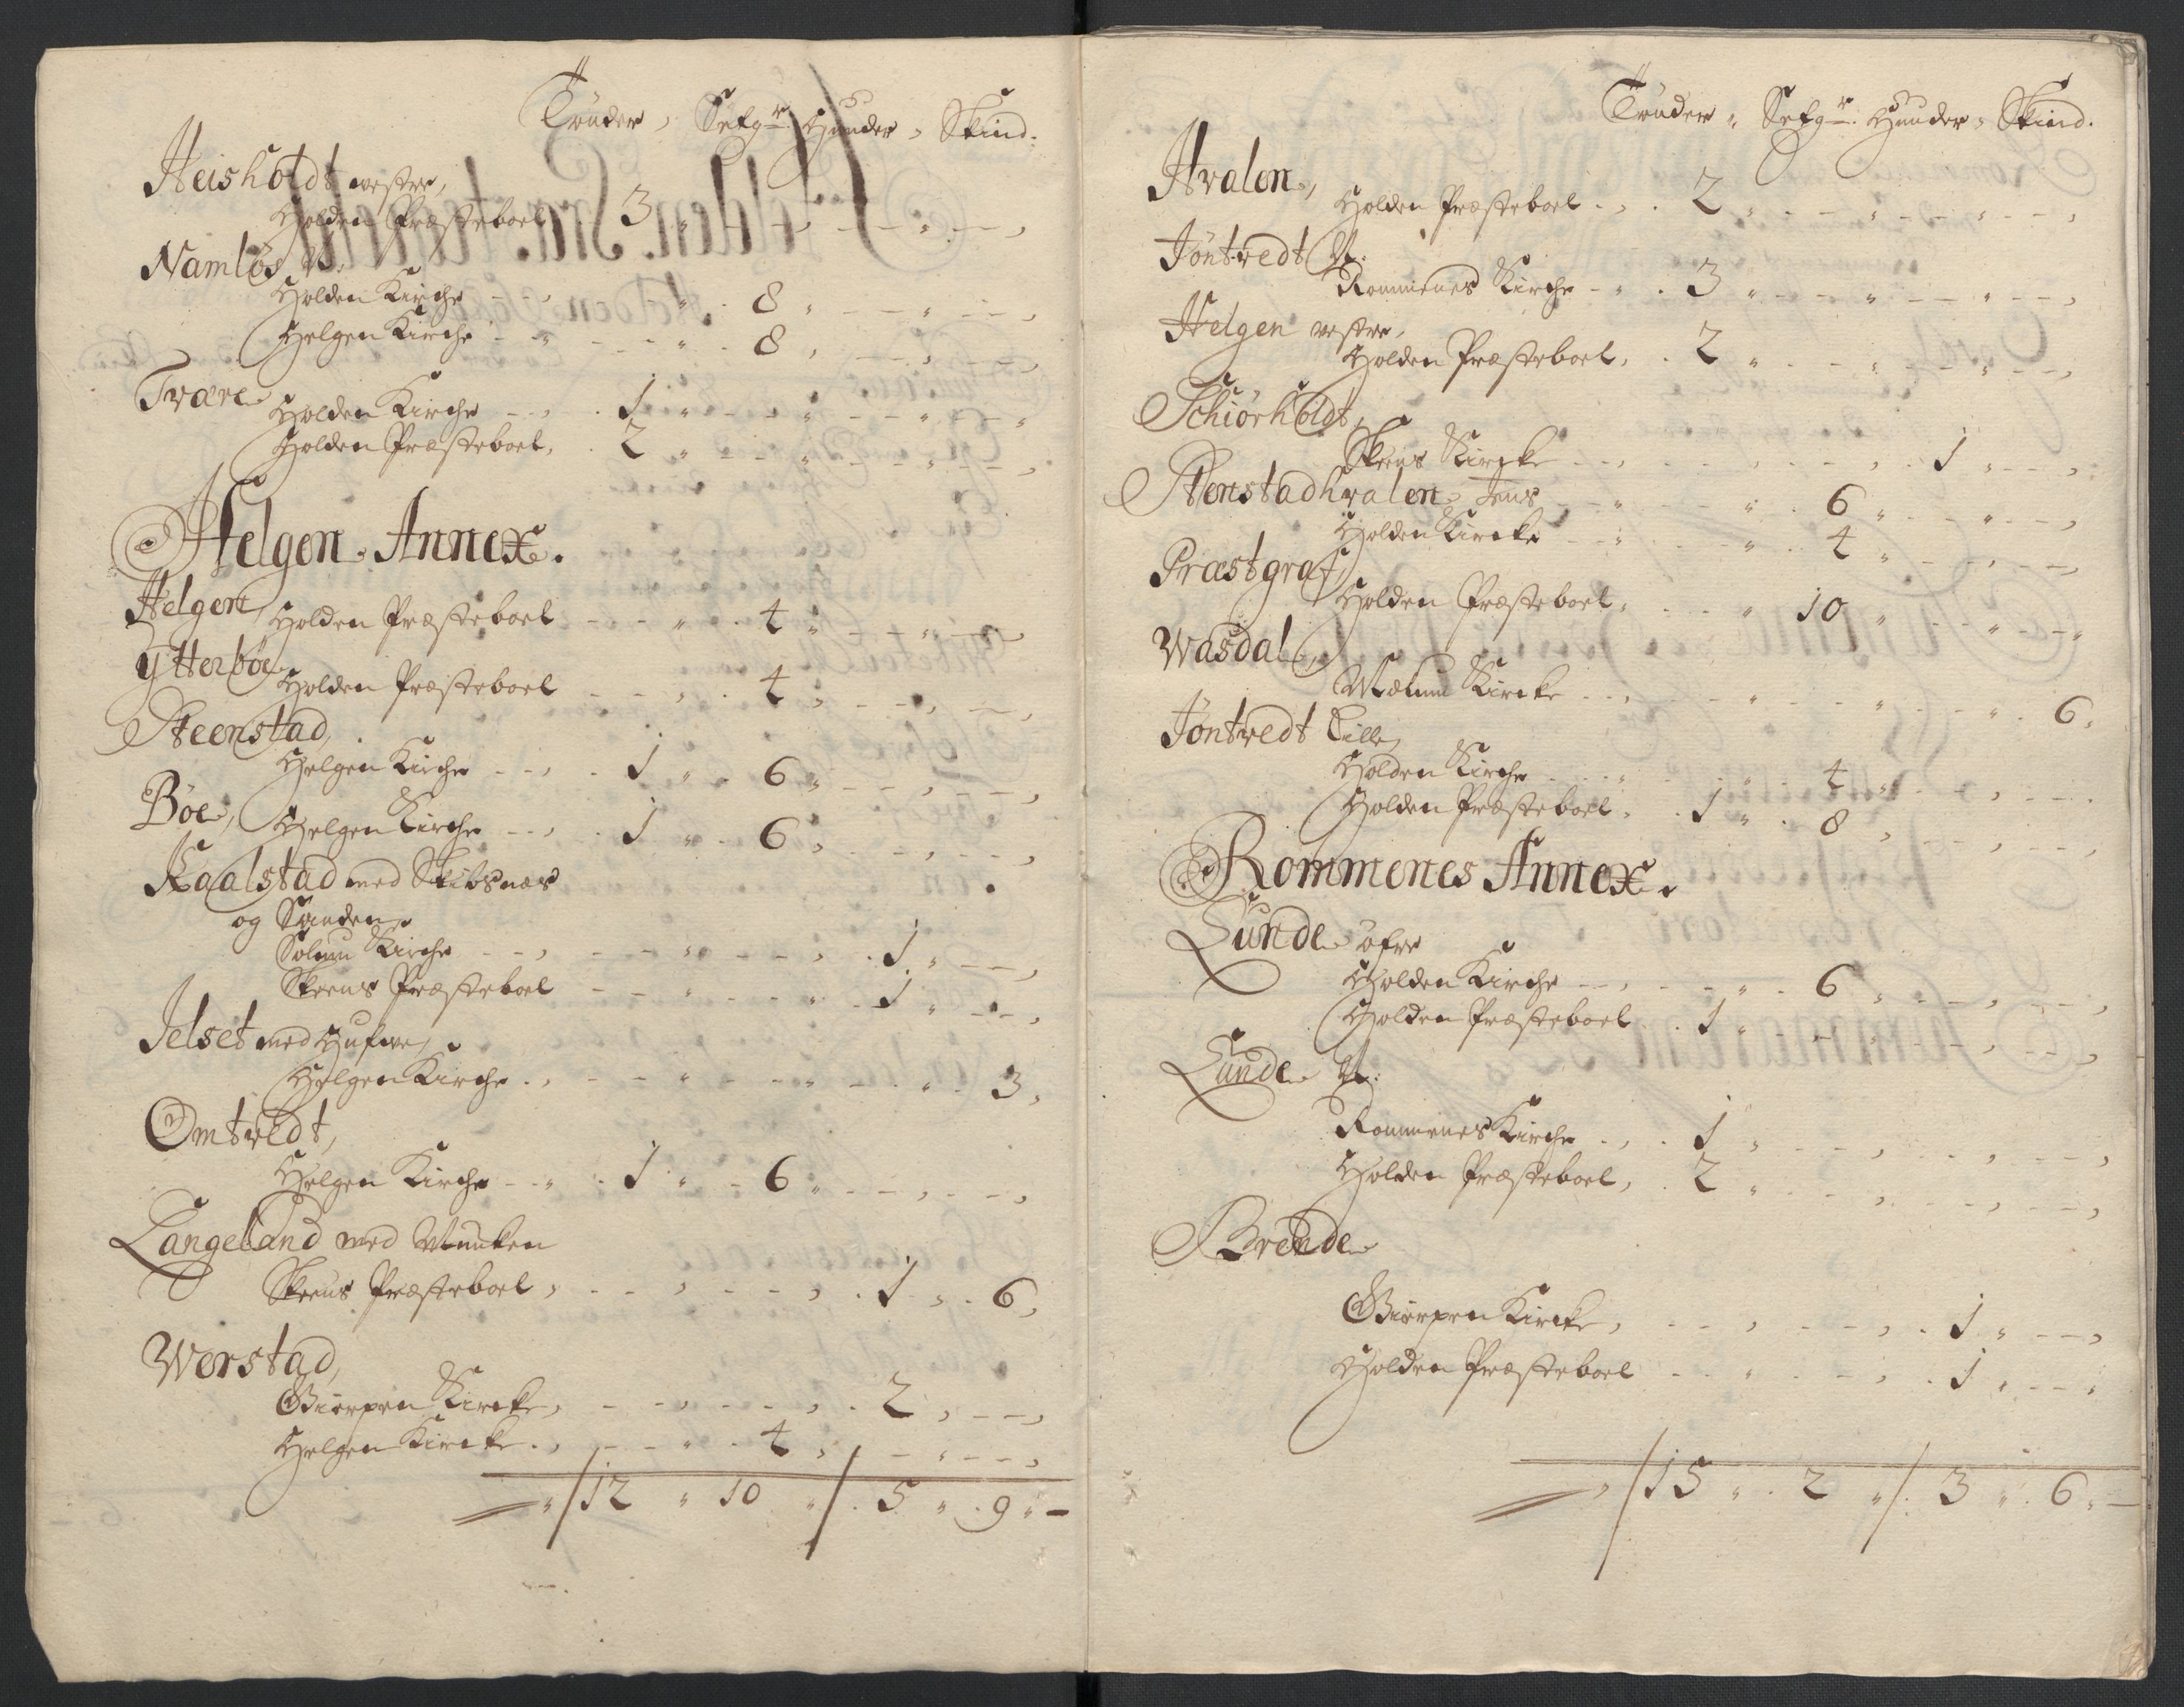 Tønder, Setg<sup>r</sup>. Huuder, Skind.
Heisholdt westre,
Holden Præsteboel 3
Namløs N:
Holden Kirche - - 8
Helgen Kirche - - 8
Tvære
Holden Kirche - - 1
Holden Præsteboel, 2
Helgen Annex.
Helgen,
Holden Præsteboel - - 4
Ytterbøe
Holden Præsteboel - - 4
Steenstad,
Helgen Kirche - - 1 6
Böe,
Helgen Kirche - - 1 6
Kaalstad med Skibsnæs
og Sanden
Solum Kirche - - 1
Skeens Præsteboel - - 1
Jelset med Hufwe,
Helgen Kirche - - 3
Omtvedt,
Helgen Kirche - - 1 6
Langeland med Munken
Skeens Præsteboel, - - 1 6
Werstad,
Gierpen Kircke, - - 2
Helgen Kircke - - 4
12 10 5 9
Tønder, Setg<sup>r</sup>. Huuder, Skind.
Hvalen,
Holden Præsteboel 2
Jöntvedt N:
Rommenes Kirche - 3
Helgen westre,
Holden Præsteboel, 2
Schiørholdt,
Skeens Kircke - - 1
Stenstadhvalen Jens - - 6
Holden Kircke - - 4
Præstgraf,
Holden Præsteboel, - - 10
Wasdal,
Mælum Kircke - - 6
Jöntvedt Lille,
Holden Kirche - - 4
Holden Præsteboel, 1 8
Rommenes Annex.
Lunde øfre
Holden Kirche - - 6
Holden Præsteboel 1
Lunde N:
Rommenes Kirche - 1
Holden Præsteboel, 2
Brende
Gierpen Kircke, - - 1
Holden Præsteboel - - 1
15 2 3 6